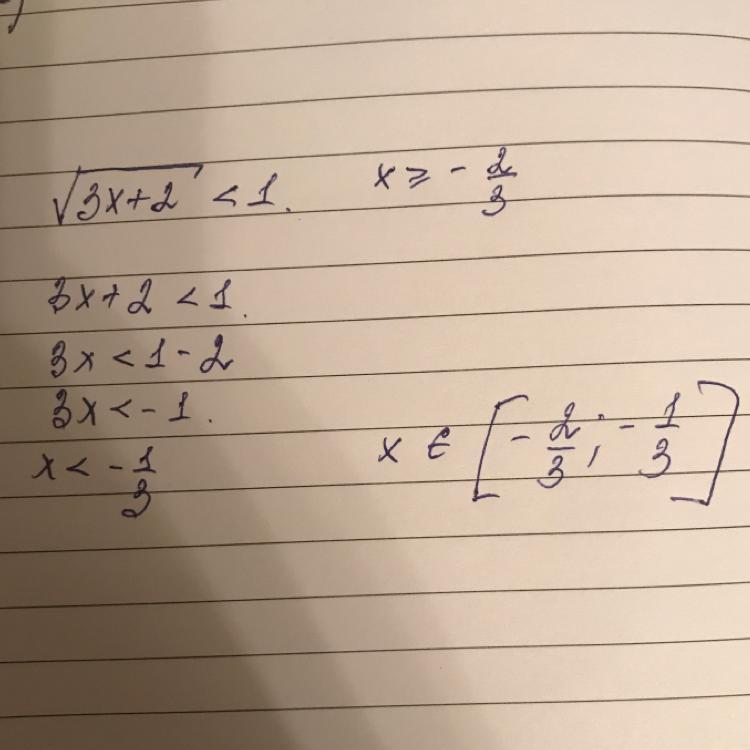 √3x+2 < 1. x ≥ - 2/3
3x+2 < 1.
3x < 1 - 2
3x < - 1.
x < - 1/3
x ∈ [- 2/3 ; - 1/3]